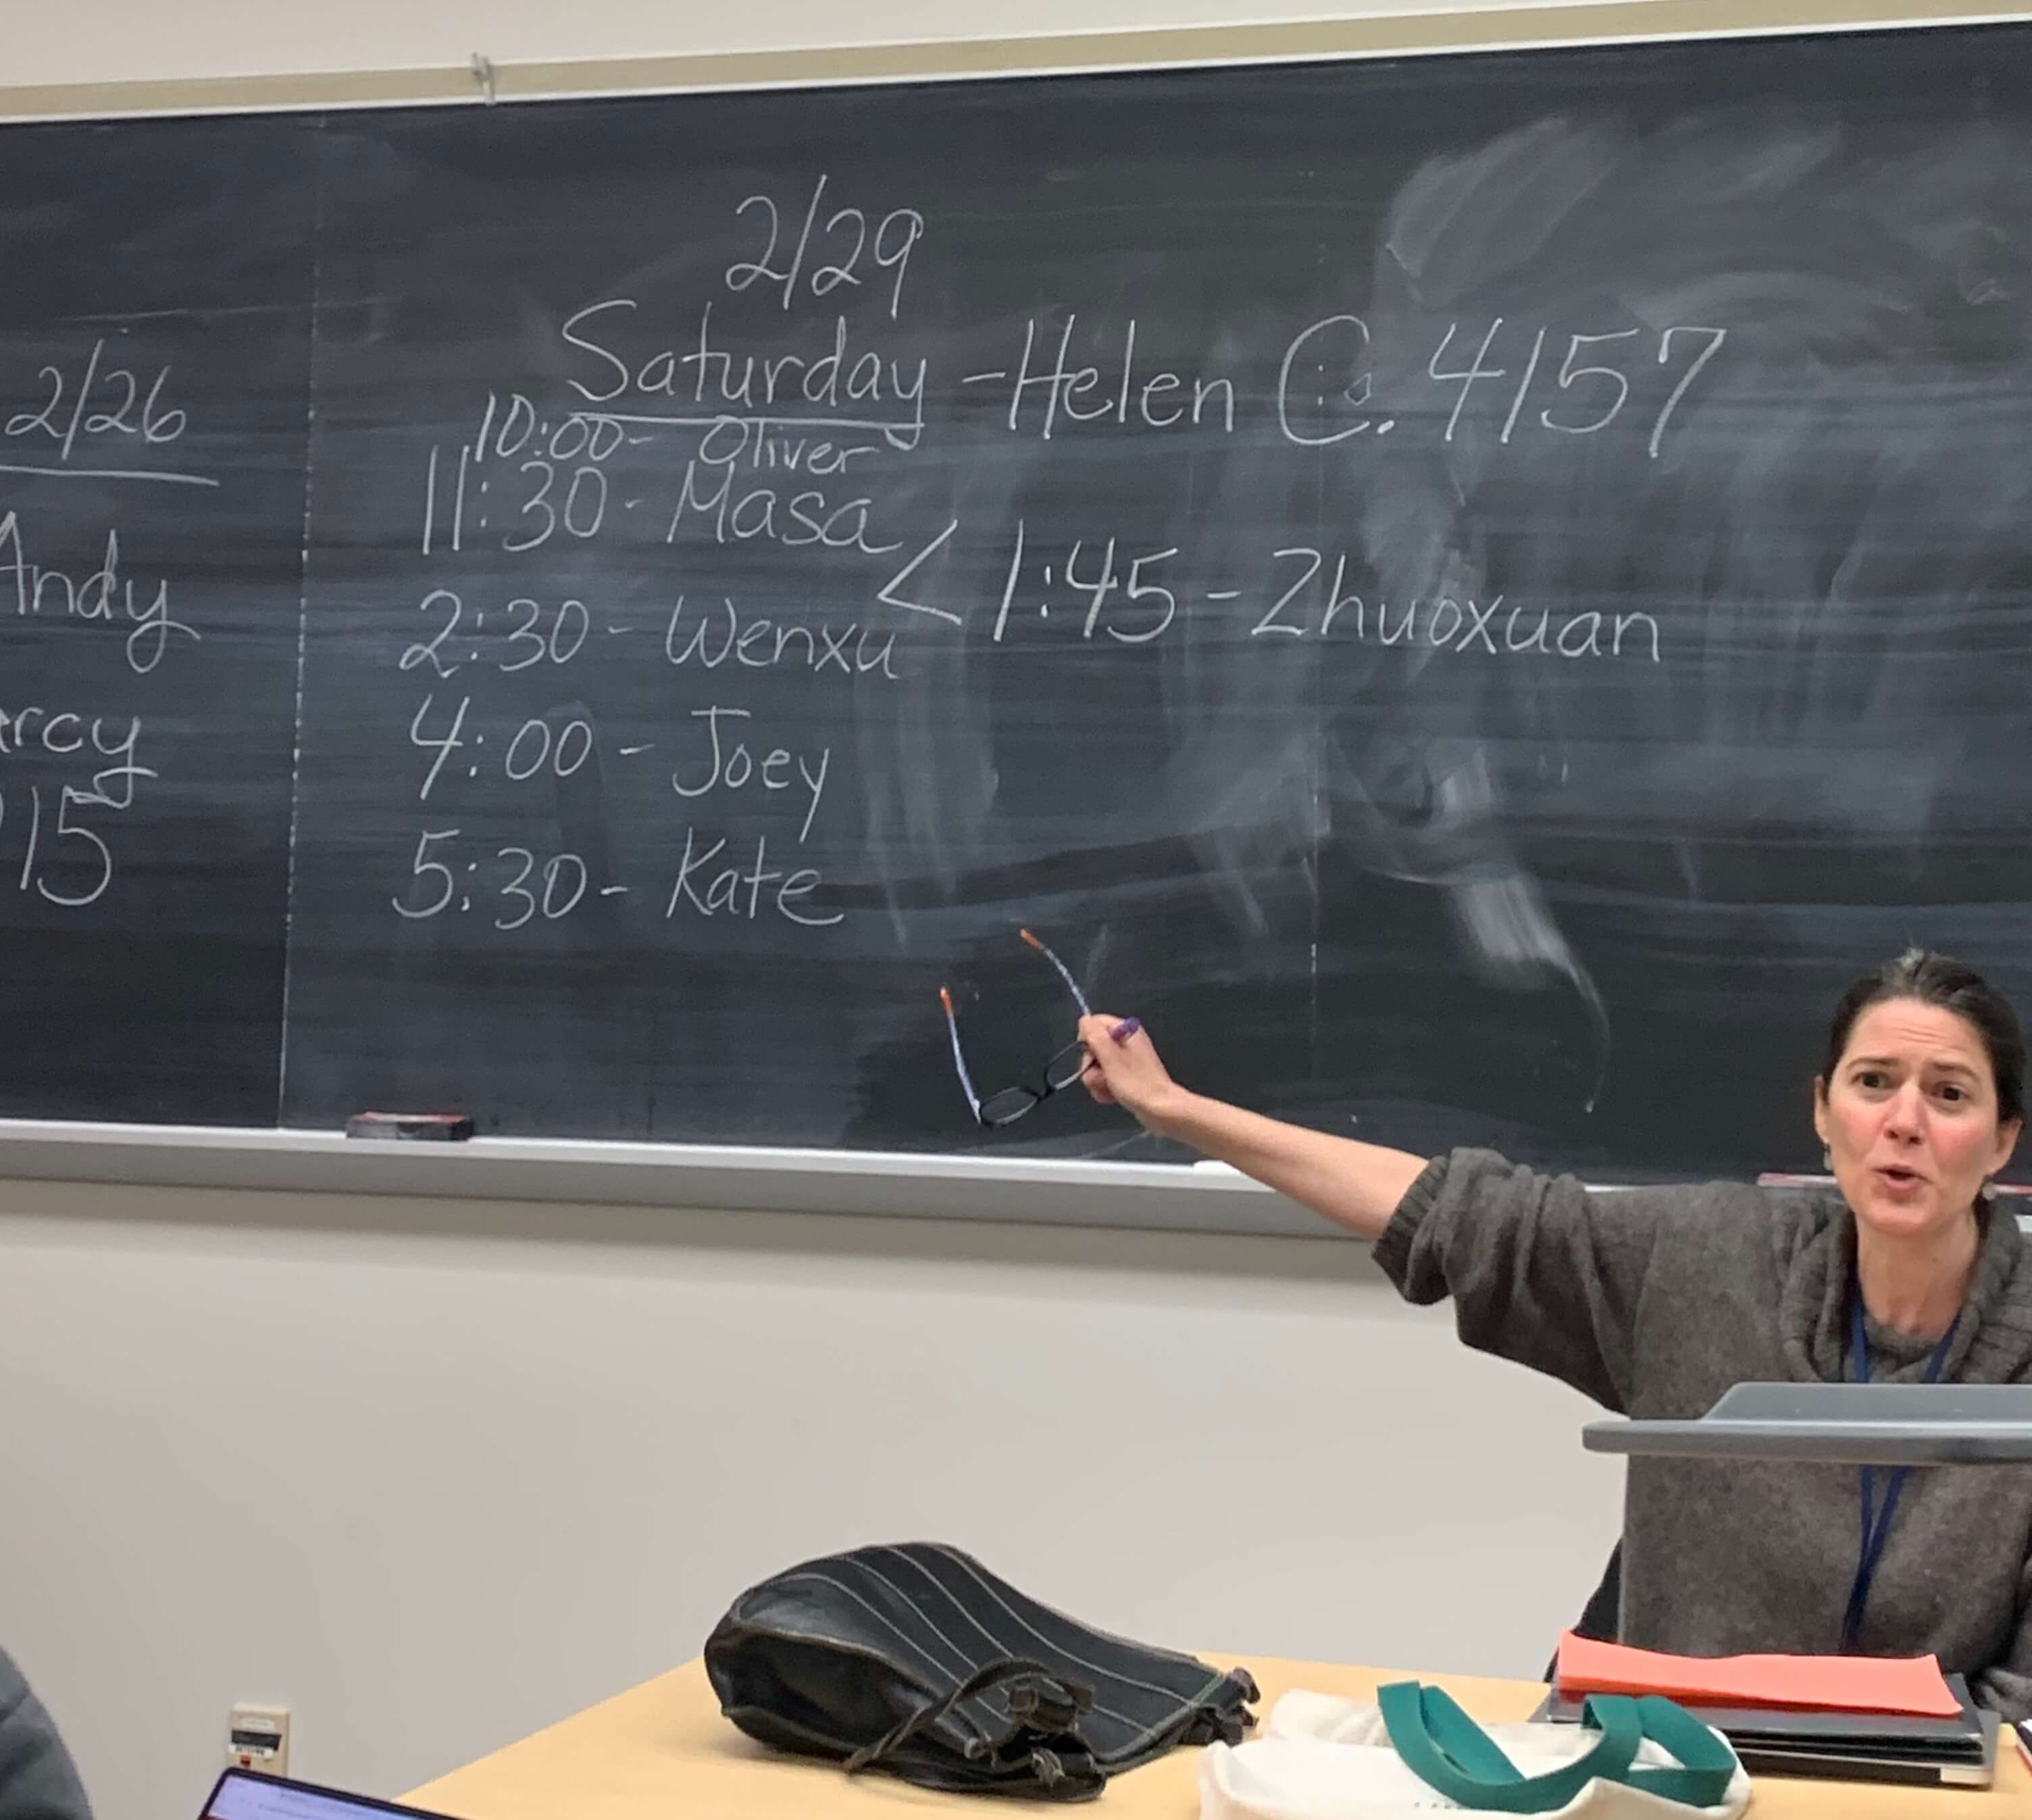 2/26
Andy
rcy
15
2/29
Saturday - Helen C. 4157
10:00 - Oliver
11:30 - Masa
< 1:45 - Zhuoxuan
2:30 - Wenxu
4:00 - Joey
5:30 - Kate